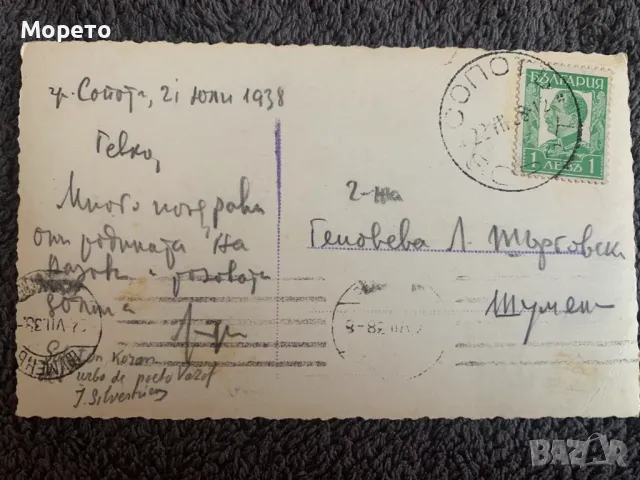 Морето
гр. Сопот, 21 Юли 1938
Генко,
Много поздрави
от родината на
Вазов и розовата
долина
СОПОТ
22.VII.
БЪЛГАРИЯ
1 ЛЕВЪ 1
Г-ца
Геновева Л. Търговск
Шумен
VII 38-8
VII.38
ШУМЕНЪ
urbo de poeto Vazof
J. Silvestri
BAZAR